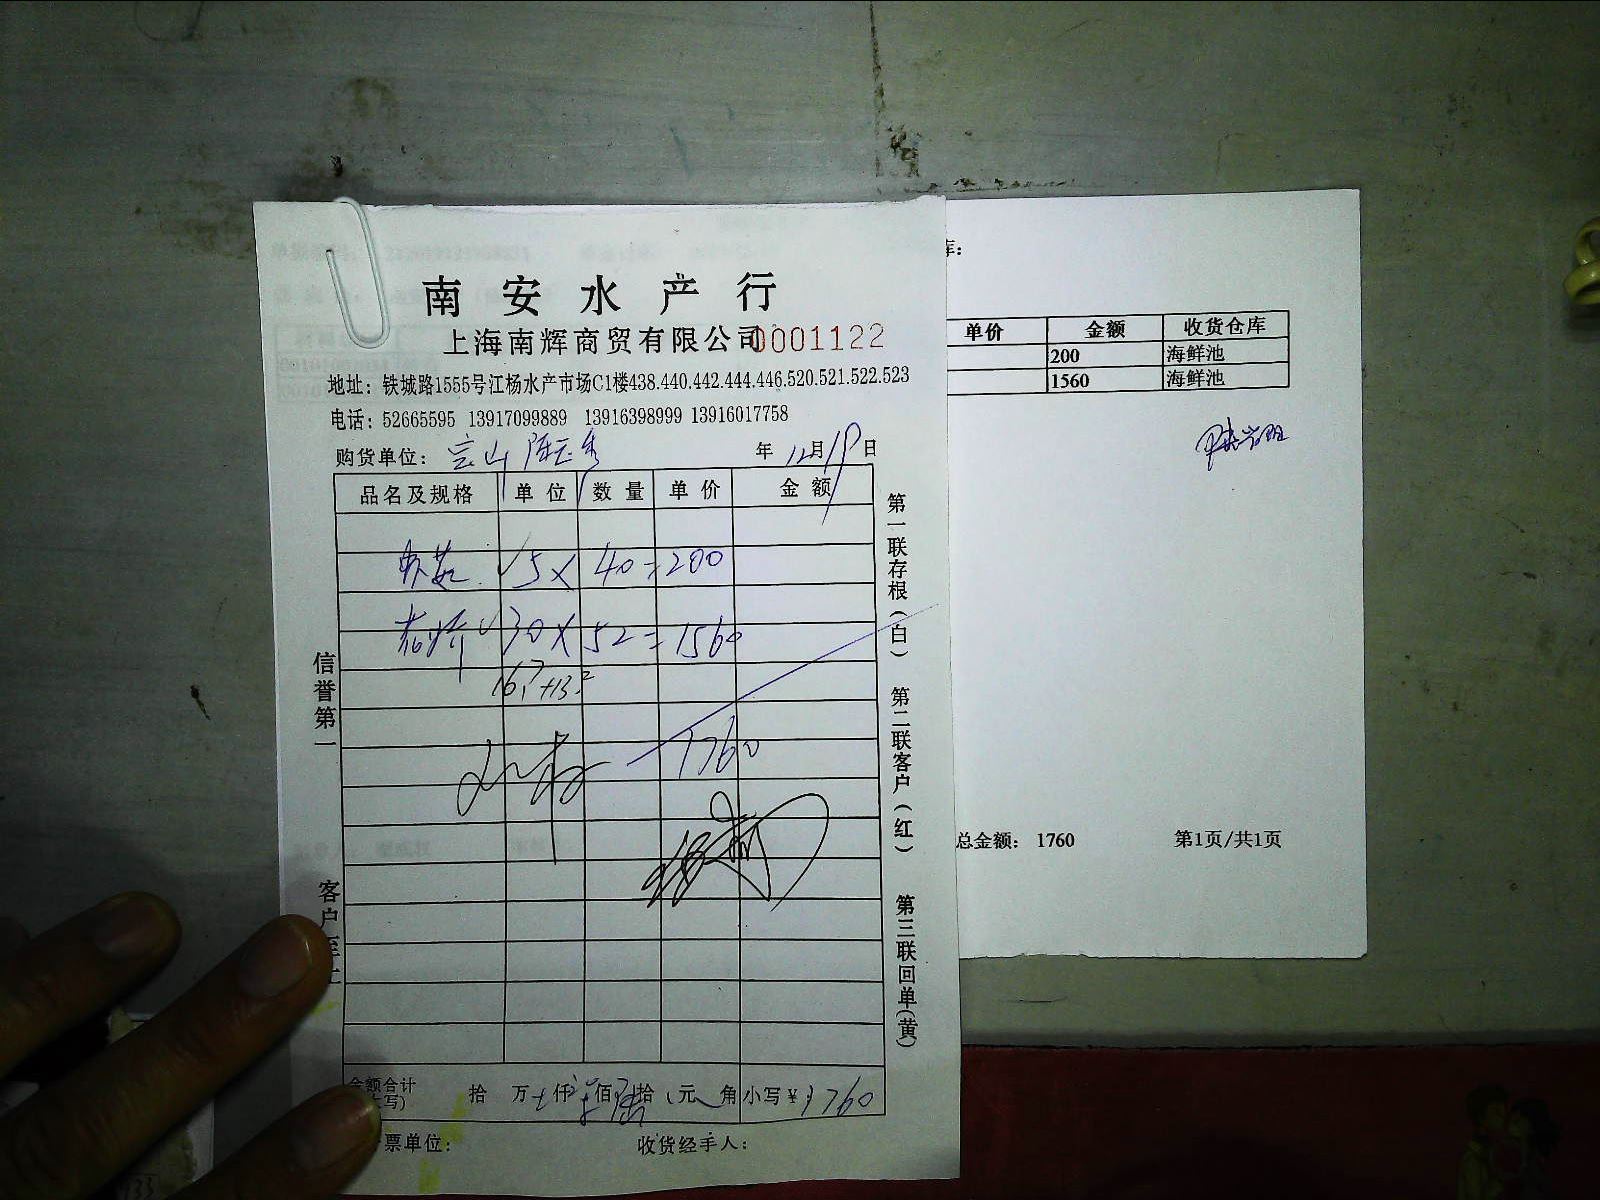 南安水产行
上海南辉商贸有限公司 0001122
地址：铁城路1555号江杨水产市场C1楼438.440.442.444.446.520.521.522.523
电话：52665595 13917099889 13916398999 13916017758
购货单位：宝山 陈玉秀 年 12月19日
品名及规格 单位 数量 单价 金额
5 X 40 = 200
30 X 52 = 1560
16.7+13.2
1760
金额合计 拾 万 仟 佰 拾 元 角 小写￥1760
票单位： 收货经手人：
信誉第一
客户
第一联存根（白） 第二联客户（红） 第三联回单（黄）
库：
单价 金额 收货仓库
200 海鲜池
1560 海鲜池
总金额： 1760 第1页/共1页